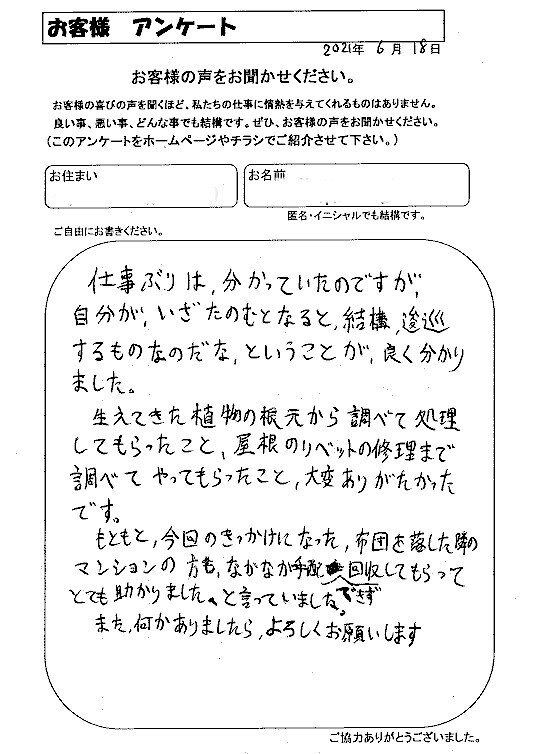 お客様 アンケート
2021年 6月 18日
お客様の声をお聞かせください。
お客様の喜びの声を聞くほど、私たちの仕事に情熱を与えてくれるものはありません。
良い事、悪い事、どんな事でも結構です。ぜひ、お客様の声をお聞かせください。
(このアンケートをホームページやチラシでご紹介させて下さい。)
お住まい
お名前
匿名・イニシャルでも結構です。
ご自由にお書きください。
仕事ぶりは,分かっていたのですが,
自分が,いざたのむとなると,結構,逡巡
するものなのだな,ということが,良く分かり
ました。
生えてきた植物の根元から調べて処理
してもらったこと,屋根のリベットの修理まで
調べてやってもらったこと,大変ありがたかった
です。
もともと,今回のきっかけになった,布団を落した隣の
マンションの方も,なかなか手配できず回収してもらって
とても助かりました、と言っていました。
また,何かありましたら,よろしくお願いします
ご協力ありがとうございました。